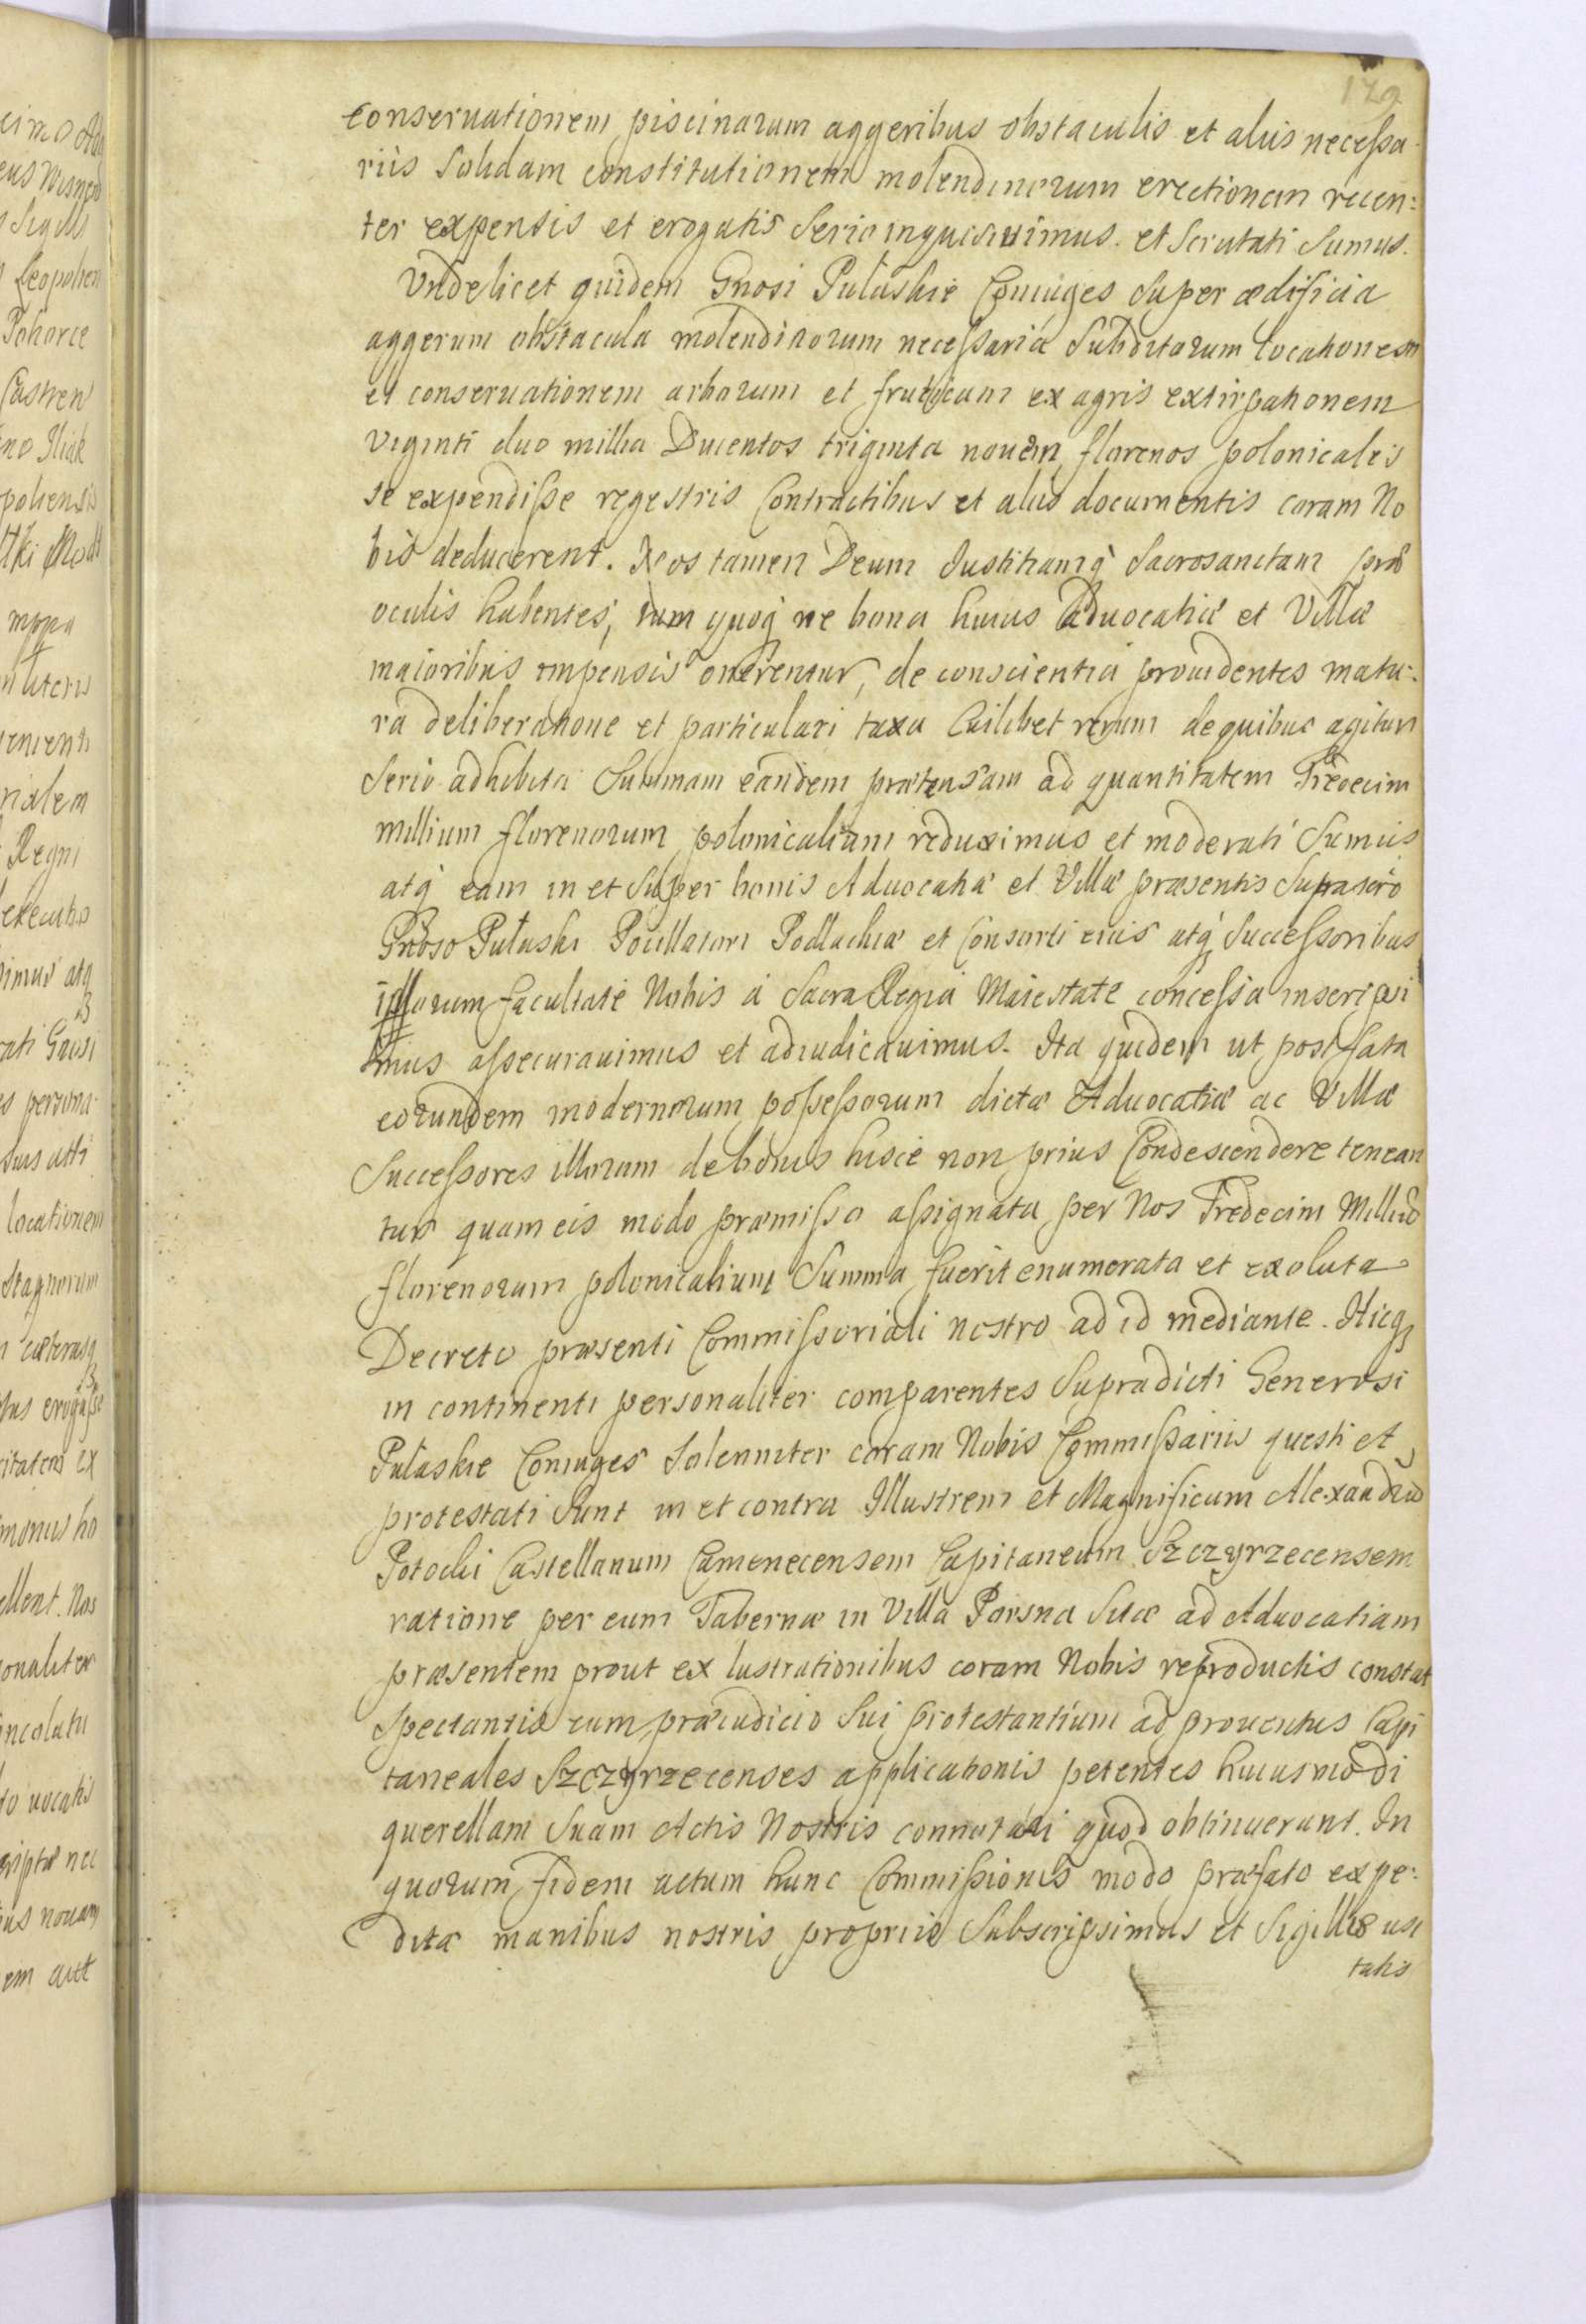 179
conseruationem piscinarum aggeribus obstaculis et alijs necessa-
riis solidam constitutionem molendinorum erectionem recen:
ter expensis et erogatis serio inquisiuimus et scrutati sumus.
Vnde licet quidem Gnosi Pułaskie Coniuges super ædificia
aggerum obstacula molendinorum necessaria subditorum locationem
et conseruationem arborum et fruticum ex agris extirpationem
viginti duo millia Ducentos triginta nouem florenos polonicales
se expendisse regestris Contractibus et alijs documentis coram No
bis deducerent. Nos tamen Deum Iustitiamq Sacrosanctam præ
oculis habentes, tum quoq ne bona huius Aduocatiæ et Villæ
maioribus impensis onerentur, de conscientia prouidentes matu:
ra deliberatione et particulari taxa Cuilibet rerum de quibus agitur
serio adhibita Summam eandem prætensam ad quantitatem Tredecim
millium florenorum polonicalium reduximus et moderati Sumus
atq eam in et super bonis Aduocatiæ et Villæ præsentis suprascrõ
Gnoso Pułaski Pocillatori Podlachiæ et Consorti eius atq Successoribus
illorum facultate Nobis a Sacra Regia Maiestate concessa inscripsi
mus assecurauimus et adiudicauimus. Ita quidem ut post fata
eorundem modernorum possessorum dictæ Aduocatiæ ac Villæ
Successores illorum de bonis hisce non prius Condescendere tenean
tur quam eis modo præmisso assignata per Nos Tredecim Milliũ
florenorum polonicalium Summa fuerit enumerata et exoluta
Decreto præsenti Commissoriali nostro ad id mediante. Hicq
in continenti personaliter comparentes Supradicti Generosi
Pułaskie Coniuges solenniter coram Nobis Commissariis questi et
protestati sunt in et contra Illustrem et Magnificum Alexandrũ
Potocki Castellanum Camenecensem Capitaneum Szczyrzecensem
ratione per eum Tabernæ in Villa Porsna Sitæ ad Aduocatiam
præsentem prout ex lustrationibus coram Nobis reproductis constat
spectantis cum præiudicio sui protestantium ad prouentus Capi
taneales Szczyrzecenses applicationis petentes huiusmodi
querellam suam Actis Nostris connotari quod obtinuerunt. In
quorum fidem actum hunc Commissionis modo præfato expe:
ditæ manibus nostris propriis Subscripsimus et Sigillis usi
tatis